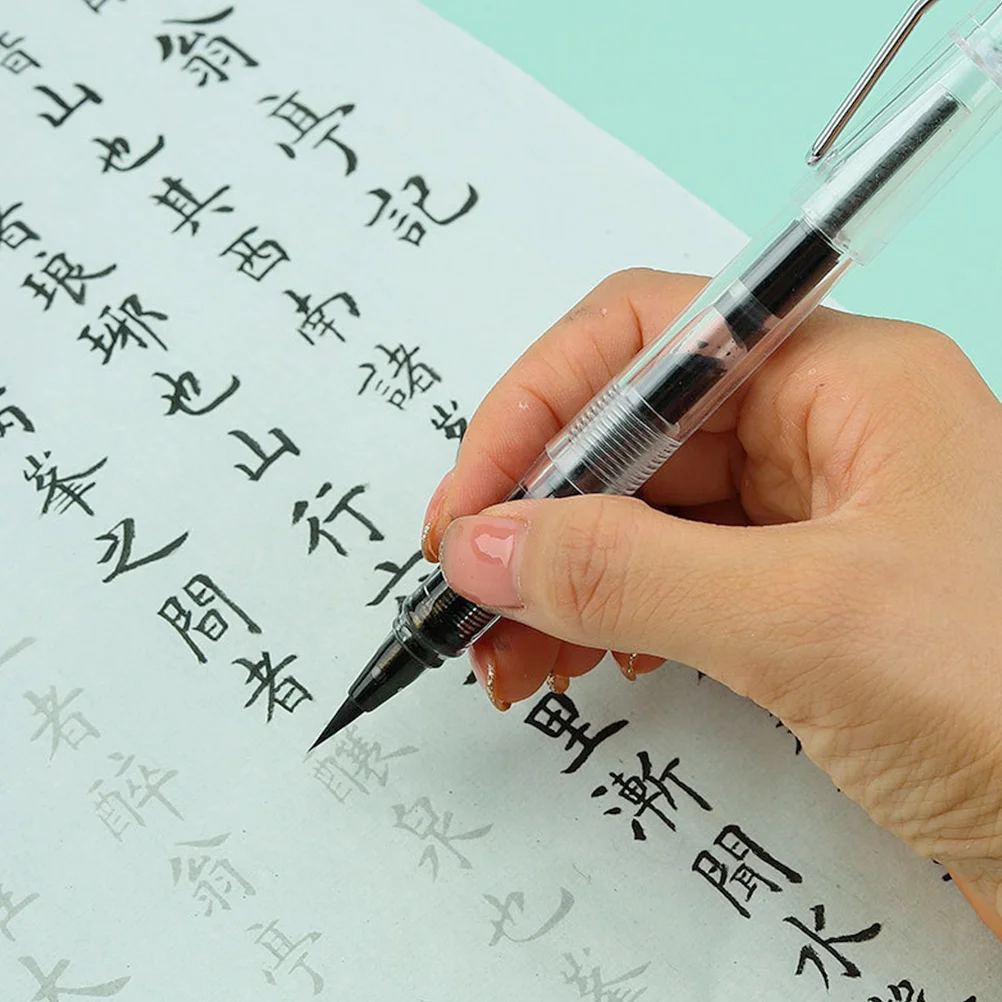 翁亭記
山也其西南諸
者琅琊也山行六里漸聞水
峯之間者釀泉也峯
者醉翁亭